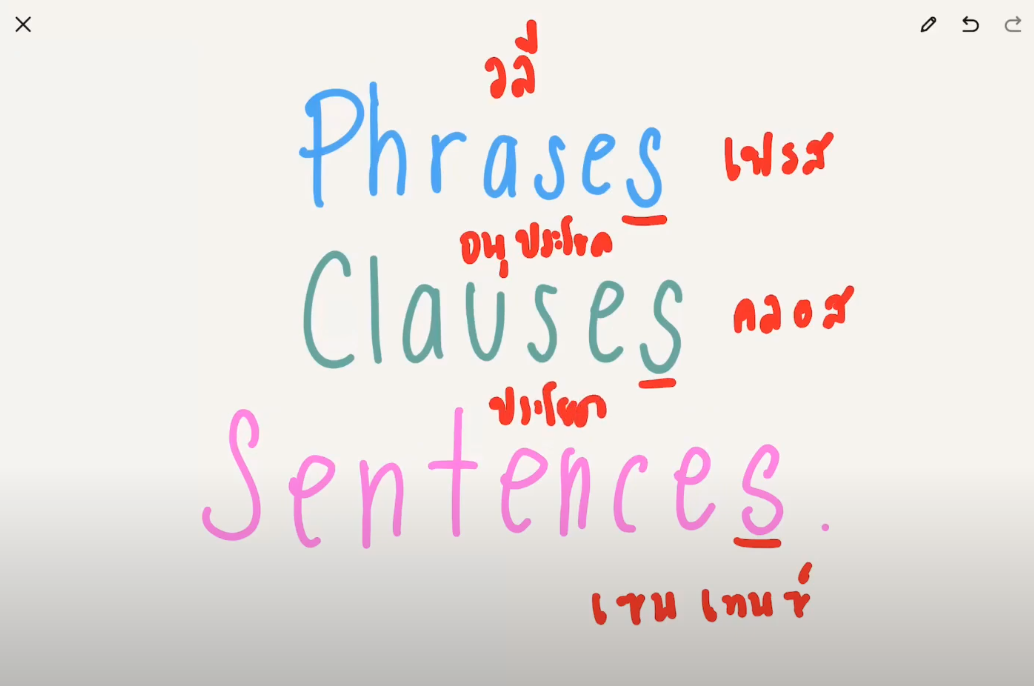 วลี
Phrases เฟรส
อนุประโยค
Clauses คลอส
ประโยค
Sentences.
เซนเทนซ์